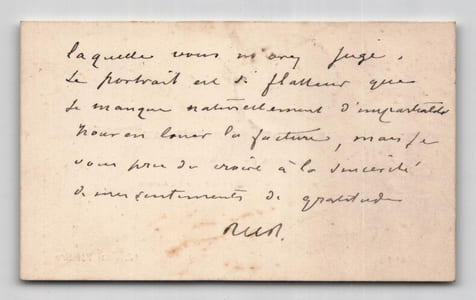 laquelle vous m'avez jugé.
Le portrait est si flatteur que
je manque naturellement d'impartialité
pour en louer la facture, mais je
vous prie de croire à la sincérité
de mes sentiments de gratitude